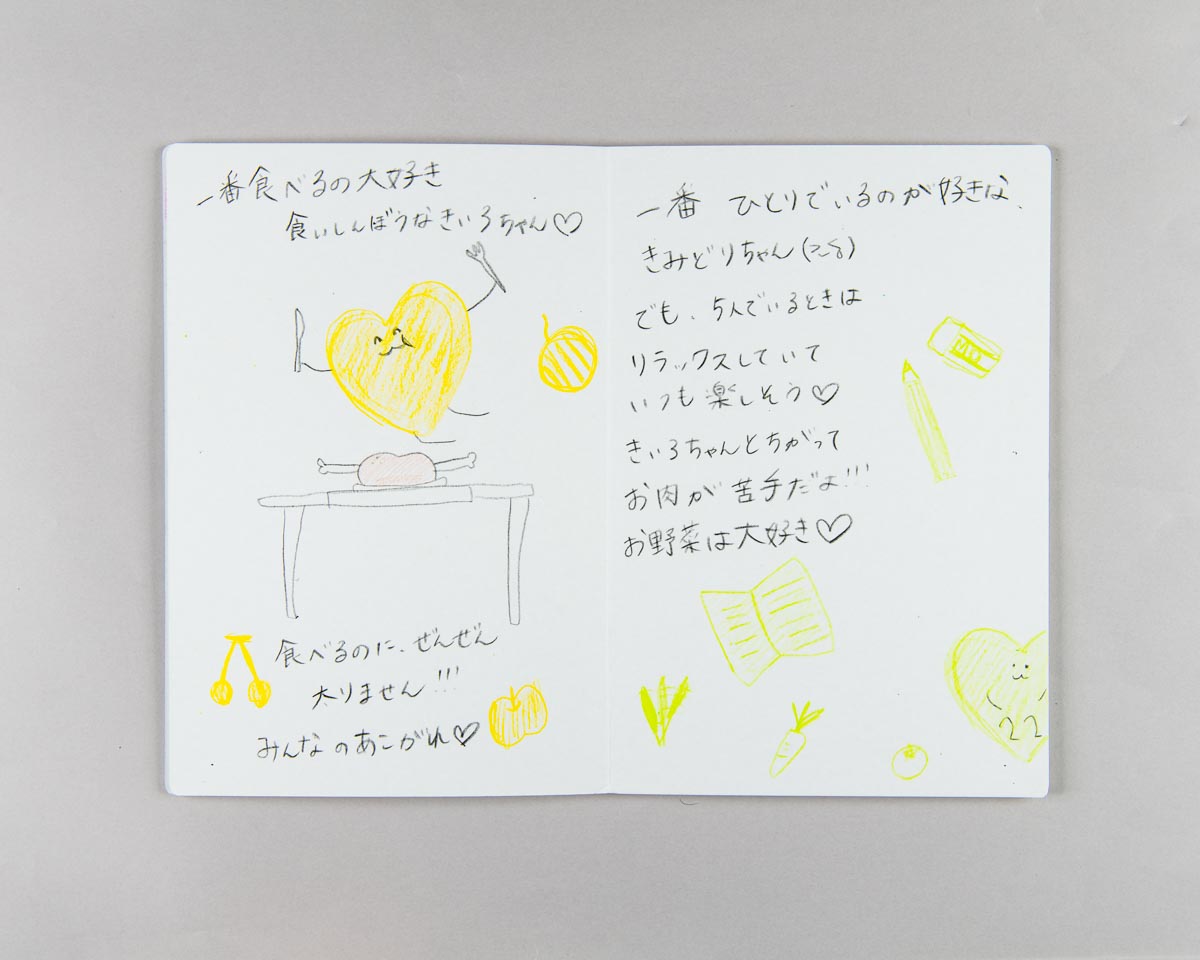 一番食べるの大好き
食いしんぼうなきいろちゃん♡
食べるのに、ぜんぜん
太りません!!!
みんなのあこがれ♡
一番 ひとりでいるのが好きな、
きみどりちゃん
でも、5人でいるときは
リラックスしていて
いつも楽しそう♡
きいろちゃんとちがって
お肉が苦手だよ!!!
お野菜は大好き♡